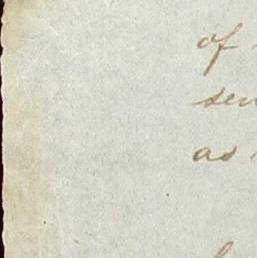 of
sen
as